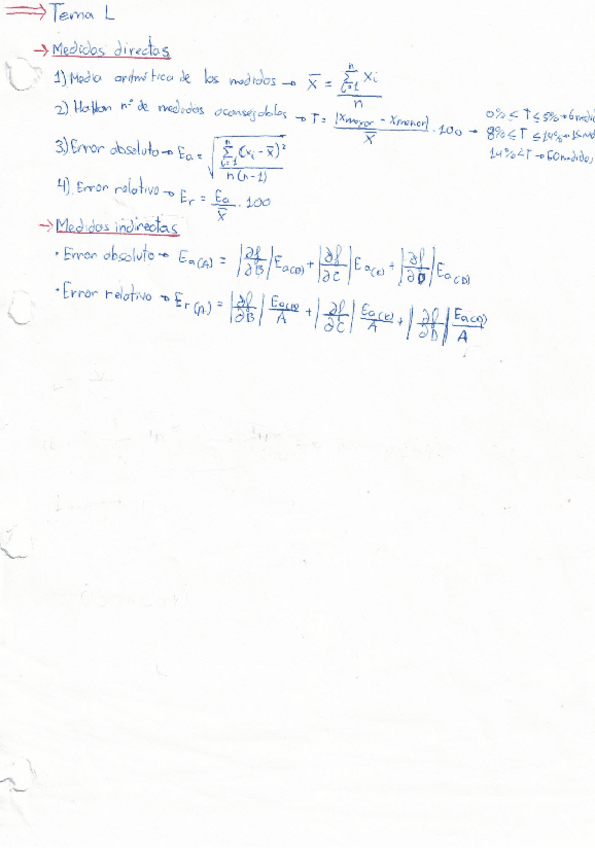 ⇒ Tema 1
→ Medidas directas
1) Media aritmética de las medidas → X̄ = Σ(i=1..n) Xi / n
2) Hallar nº de medidas aconsejables → T = |Xmayor - Xmenor| / X̄ · 100 →
0% ≤ T ≤ 5% →
8% ≤ T ≤ 14% → 15 med
14% < T → 50 medidas
3) Error absoluto → Ea = √( Σ(i=1..n) (xi - x̄)² / n(n-1) )
4) Error relativo → Er = Ea / x̄ · 100
→ Medidas indirectas
· Error absoluto → Ea(A) = |∂f/∂B| Ea(B) + |∂f/∂C| Ea(C) + |∂f/∂D| Ea(D)
· Error relativo → Er(A) = |∂f/∂B| Ea(B)/A + |∂f/∂C| Ea(C)/A + |∂f/∂D| Ea(D)/A